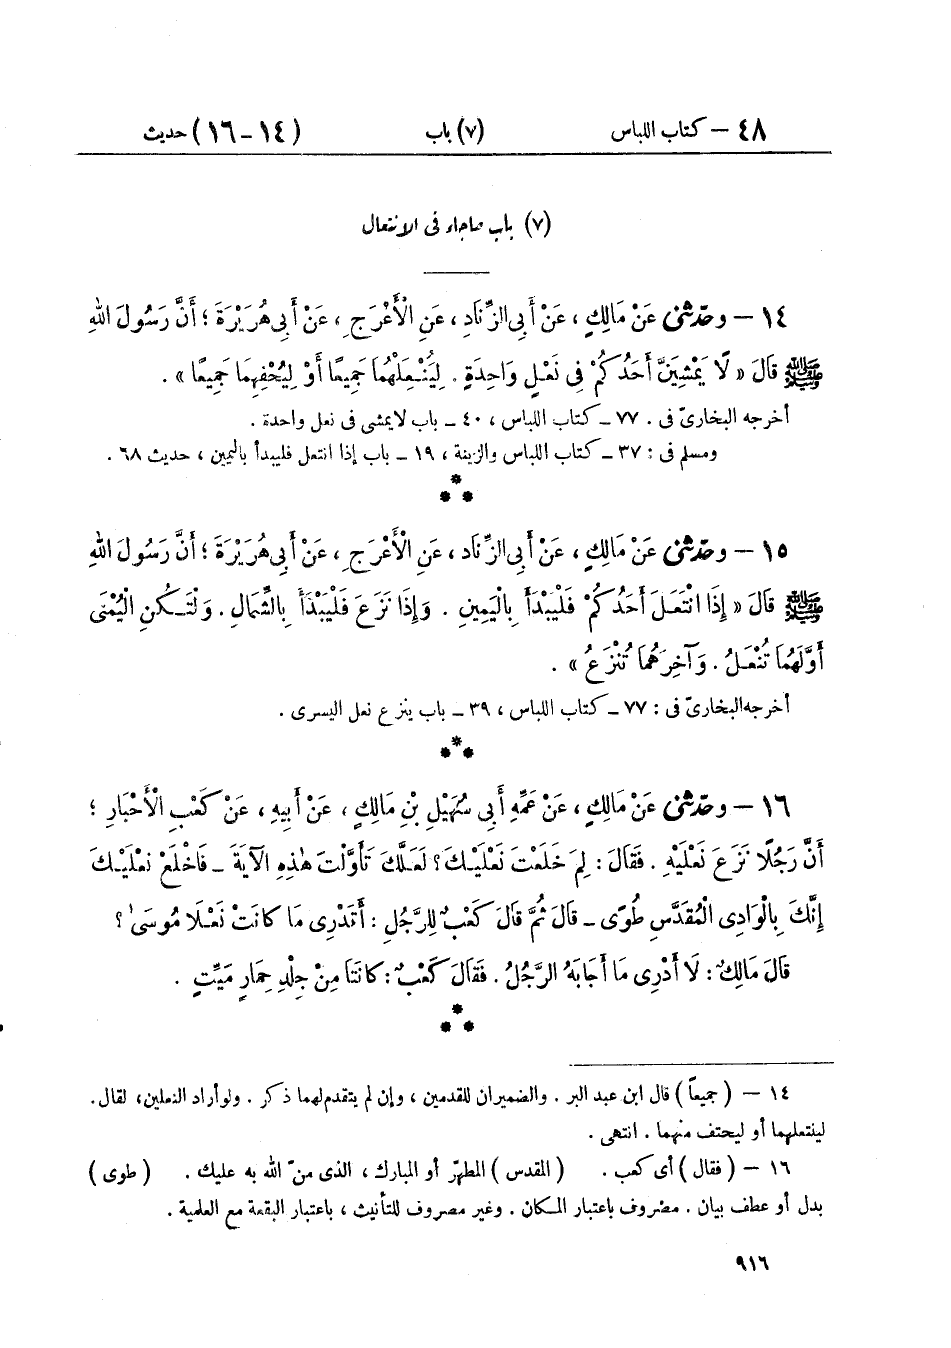 ٤٨ – كتاب اللباس (٧) باب (١٤ – ١٦) حديث
(٧) باب ماجاء فى الانتعال
١٤ – وحدّثنى عَنْ مَالِكٍ ، عَنْ أَبِى الزِّنَادِ ، عَنِ الْأَعْرَجِ ، عَنْ أَبِى هُرَيْرَةَ ؛ أَنَّ رَسُولَ اللهِ
ﷺ قَالَ « لَا يَمْشِيَنَّ أَحَدُكُمْ فِى نَعْلٍ وَاحِدَةٍ . لِيُنْعِلْهُمَا جَمِيعًا أَوْ لِيُحْفِهِمَا جَمِيعًا » .
أخرجه البخارىّ فى . ٧٧ – كتاب اللباس ، ٤٠ – باب لايمشى فى نعل واحدة .
ومسلم فى : ٣٧ – كتاب اللباس والزينة ، ١٩ – باب إذا انتعل فليبدأ باليمين ، حديث ٦٨ .
* * *
١٥ – وحدّثنى عَنْ مَالِكٍ ، عَنْ أَبِى الزِّنَادِ ، عَنِ الْأَعْرَجِ ، عَنْ أَبِى هُرَيْرَةَ ؛ أَنَّ رَسُولَ اللهِ
ﷺ قَالَ « إِذَا انْتَعَلَ أَحَدُكُمْ فَلْيَبْدَأْ بِالْيَمِينِ . وَإِذَا نَزَعَ فَلْيَبْدَأْ بِالشِّمَالِ . وَلْتَكُنِ الْيُمْنَى
أَوَّلَهُمَا تُنْعَلُ . وَآخِرَهُمَا تُنْزَعُ » .
أخرجه البخارىّ فى : ٧٧ – كتاب اللباس ، ٣٩ – باب ينزع نعل اليسرى .
* * *
١٦ – وحدّثنى عَنْ مَالِكٍ ، عَنْ عَمِّهِ أَبِى سُهَيْلِ بْنِ مَالِكٍ ، عَنْ أَبِيهِ ، عَنْ كَعْبِ الْأَحْبَارِ ؛
أَنَّ رَجُلًا نَزَعَ نَعْلَيْهِ . فَقَالَ : لِمَ خَلَعْتَ نَعْلَيْكَ ؟ لَعَلَّكَ تَأَوَّلْتَ هٰذِهِ الآيَةَ – فَاخْلَعْ نَعْلَيْكَ
إِنَّكَ بِالْوَادِى الْمُقَدَّسِ طُوًى – قَالَ ثُمَّ قَالَ كَعْبٌ لِلرَّجُلِ : أَتَدْرِى مَا كَانَتْ نَعْلَا مُوسَىٰ ؟
قَالَ مَالِكٌ : لَا أَدْرِى مَا أَجَابَهُ الرَّجُلُ . فَقَالَ كَعْبٌ : كَانَتَا مِنْ جِلْدِ حِمَارٍ مَيِّتٍ .
* * *
١٤ – (جميعاً) قال ابن عبد البر . والضميران للقدمين ، وإن لم يتقدم لهما ذكر . ولوأراد النعلين، لقال.
لينتعلهما أو ليحتف منهما . انتهى .
١٦ – (فقال) أى كعب . (المقدس) المطهّر أو المبارك ، الذى منّ الله به عليك . (طوى)
بدل أو عطف بيان . مصروف باعتبار المكان . وغير مصروف للتأنيث ، باعتبار البقعة مع العلمية .
٩١٦